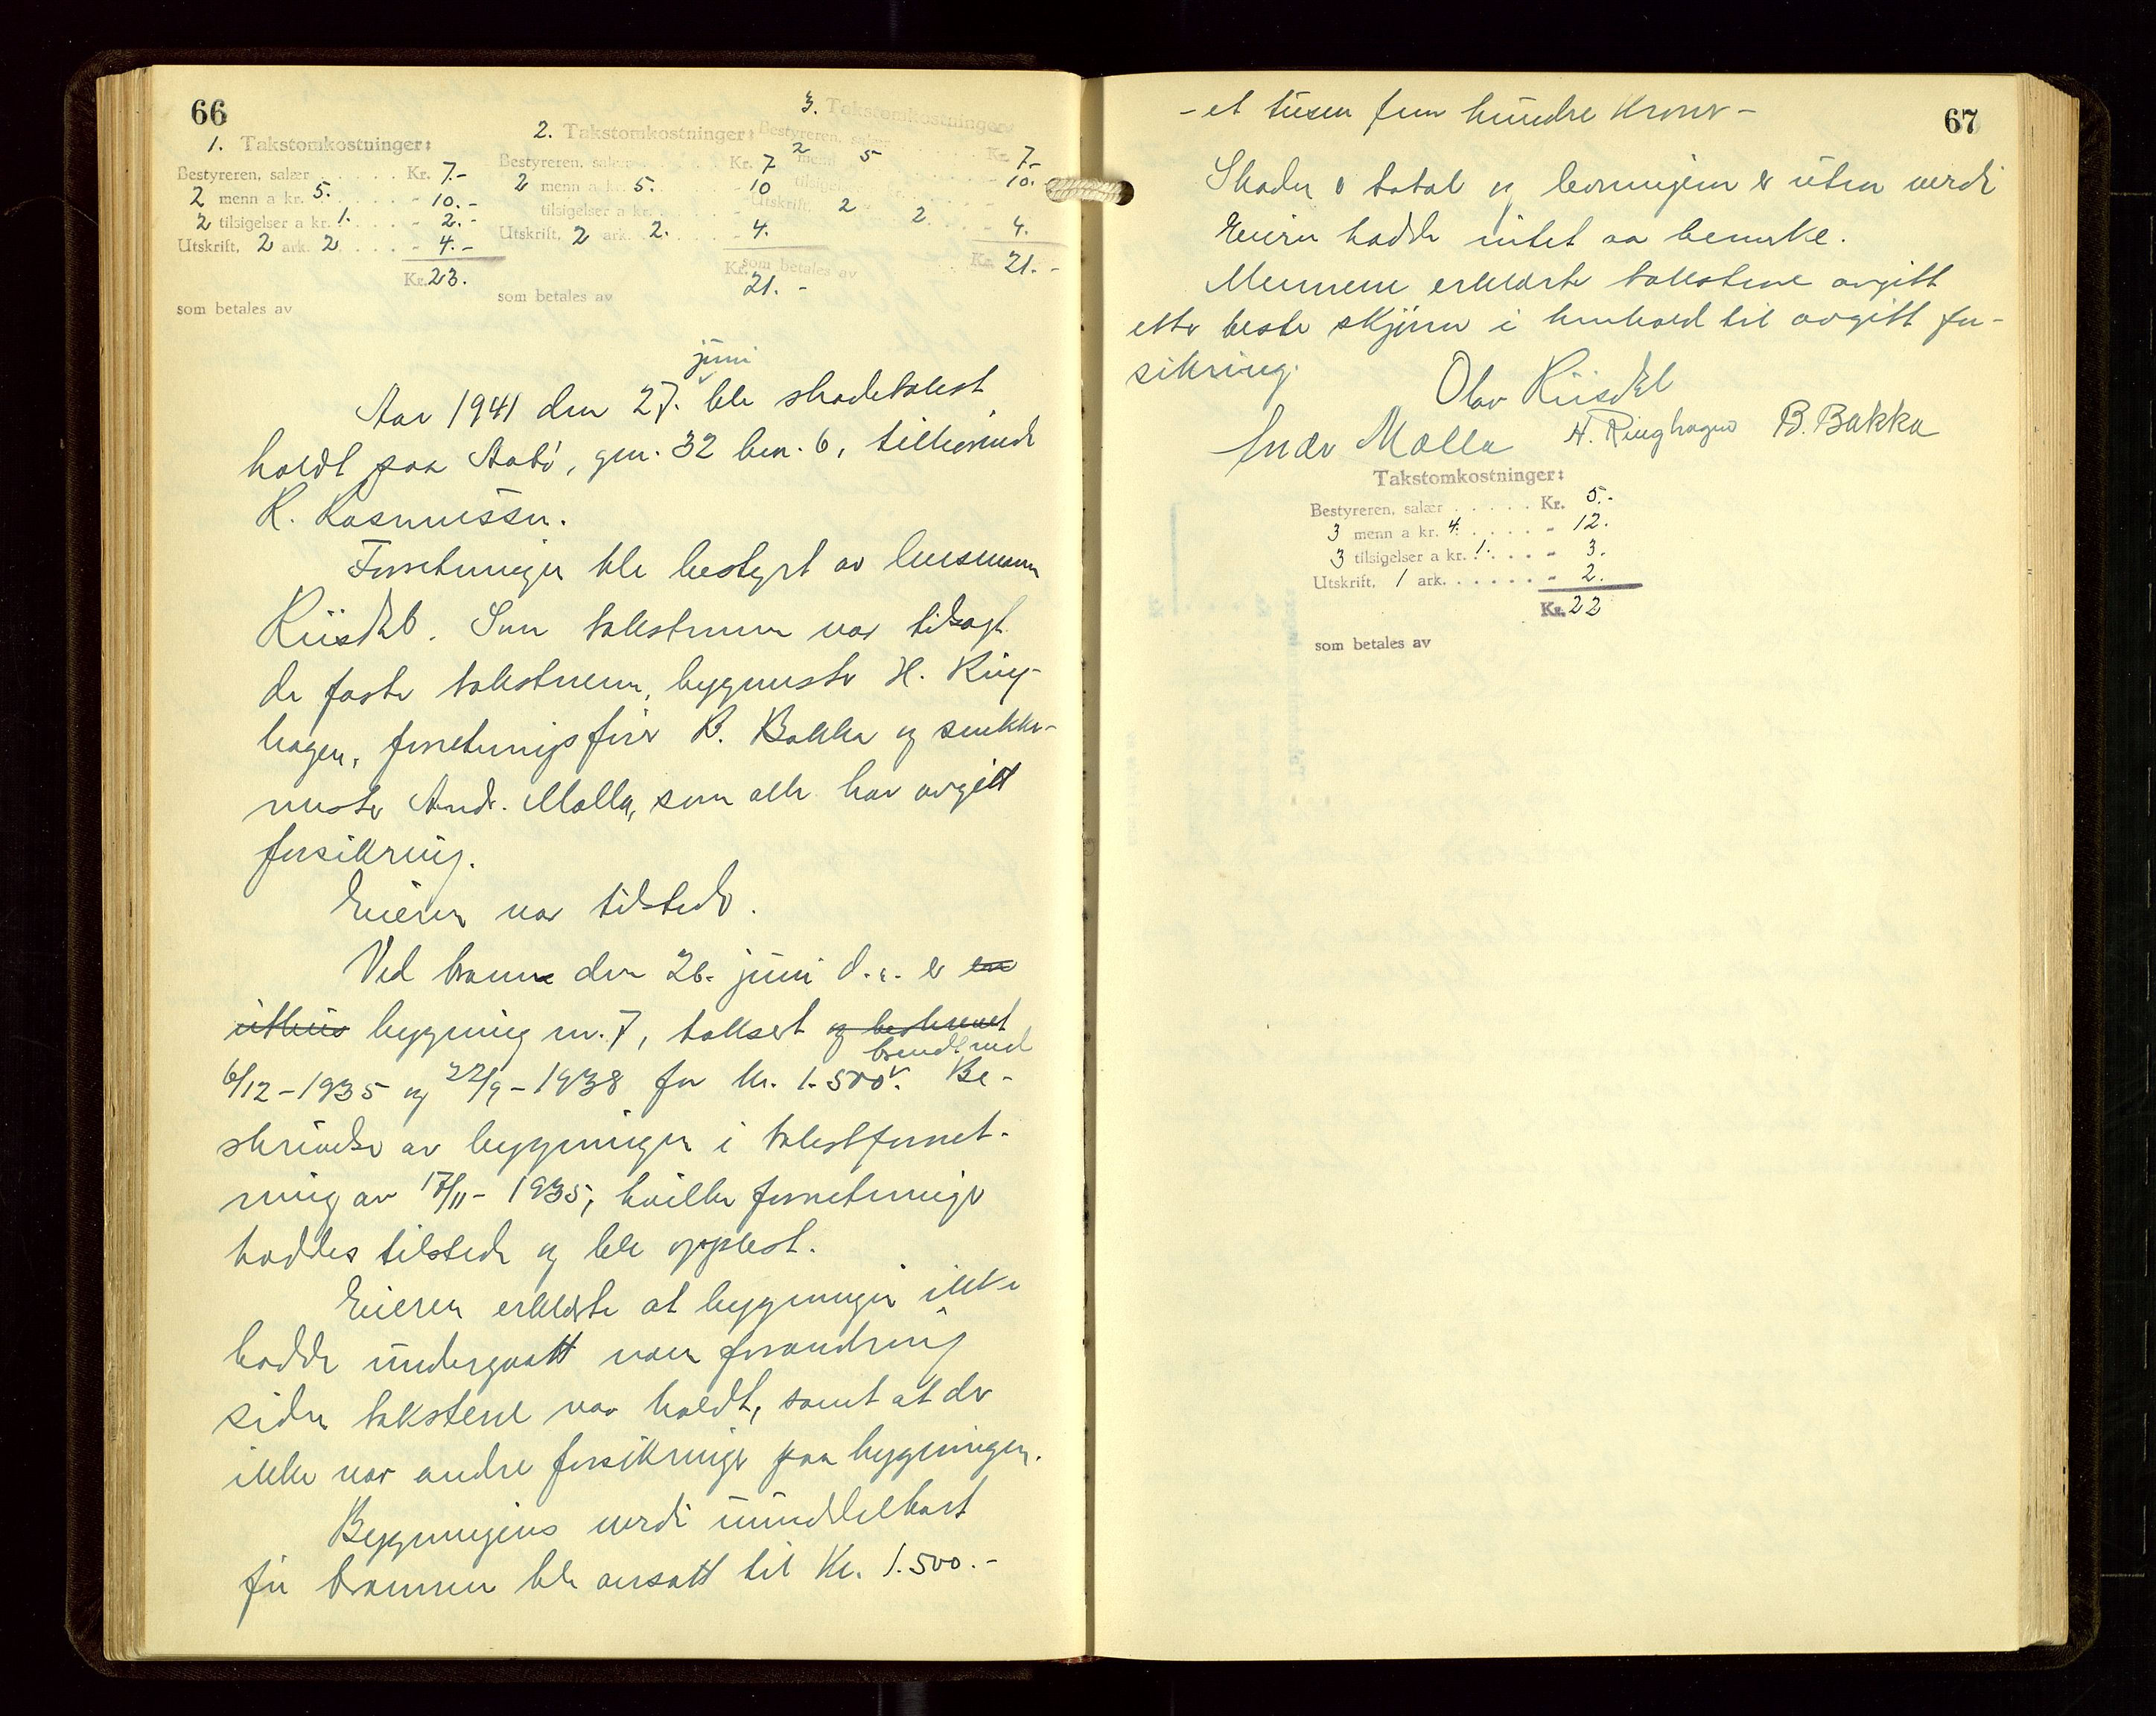 66
1. Takstomkostninger:
Bestyreren, salær . . . . . Kr. 7.-
2 menn a kr. 5. . . . . - 10.-
2 tilsigelser a kr. 1. . . . - 2.-
Utskrift, 2 ark. 2 . . . - 4.-
Kr. 23.
som betales av
2. Takstomkostninger:
Bestyreren, salær . . . . . Kr. 7
2 menn a kr. 5. . . . . - 10
tilsigelser a kr. . . . . -
Utskrift, 2 ark. 2. . . . . - 4.
Kr. 21.-
som betales av
3. Takstomkostninger:
Bestyreren, salær . . . . . Kr. 7.-
2 menn 5 - 10.-
tilsigelser
Utskrift, 2 2. - 4.
Kr. 21.-
som betales av
juni
Aar 1941 den 27. ble skadetakst
holdt paa Aabö, gnr. 32 bnr. 6, tilhörende
R. Rasmussen.
Forretningen ble bestyrt av lensmann
Riisdal. Som takstmenn var tilsagt
de faste takstmenn, byggmester H. Ring-
hagen, forretningsförer B. Bakka og snekker-
mester Andr. Malla, som alle har avgitt
forsikring.
Eieren var tilstede.
Ved brann den 26. juni d.a. er en
uthus bygning nr. 7, taksert og beskrevet
brendt ned
6/12 - 1935 og 22/9 - 1938 for kr. 1.500.- Be-
skrivelse av bygningen i takstforret-
ning av 17/11 - 1935, hvilke forretninger
haddes tilstede og ble opplest.
Eieren erklærte at bygningen ikke
hadde undergaatt noen forandring
siden takstene var holdt, samt at der
ikke var andre forsikringer paa bygningen.
Bygningens verdi umiddelbart
för brannen ble ansatt til Kr. 1.500.-
67
- et tusen fem hundre kroner -
Skaden er total og levningene er uten verdi
Eieren hadde intet aa bemerke.
Mennene erklærte takstene avgitt
etter beste skjönn i henhold til avgitt for-
sikring.
Olav Riisdal
Andr Malla H. Ringhagen B. Bakka
Takstomkostninger:
Bestyreren, salær . . . . . Kr. 5.-
3 menn a kr. 4. . . . . - 12.
3 tilsigelser a kr. 1. . . . - 3.
Utskrift, 1 ark. . . . . . - 2.
Kr. 22
som betales av